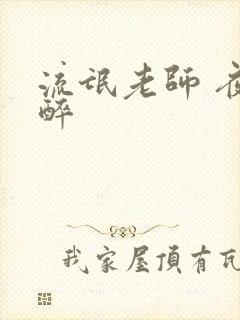 流氓老師 夜
醉
我家屋頂有瓦